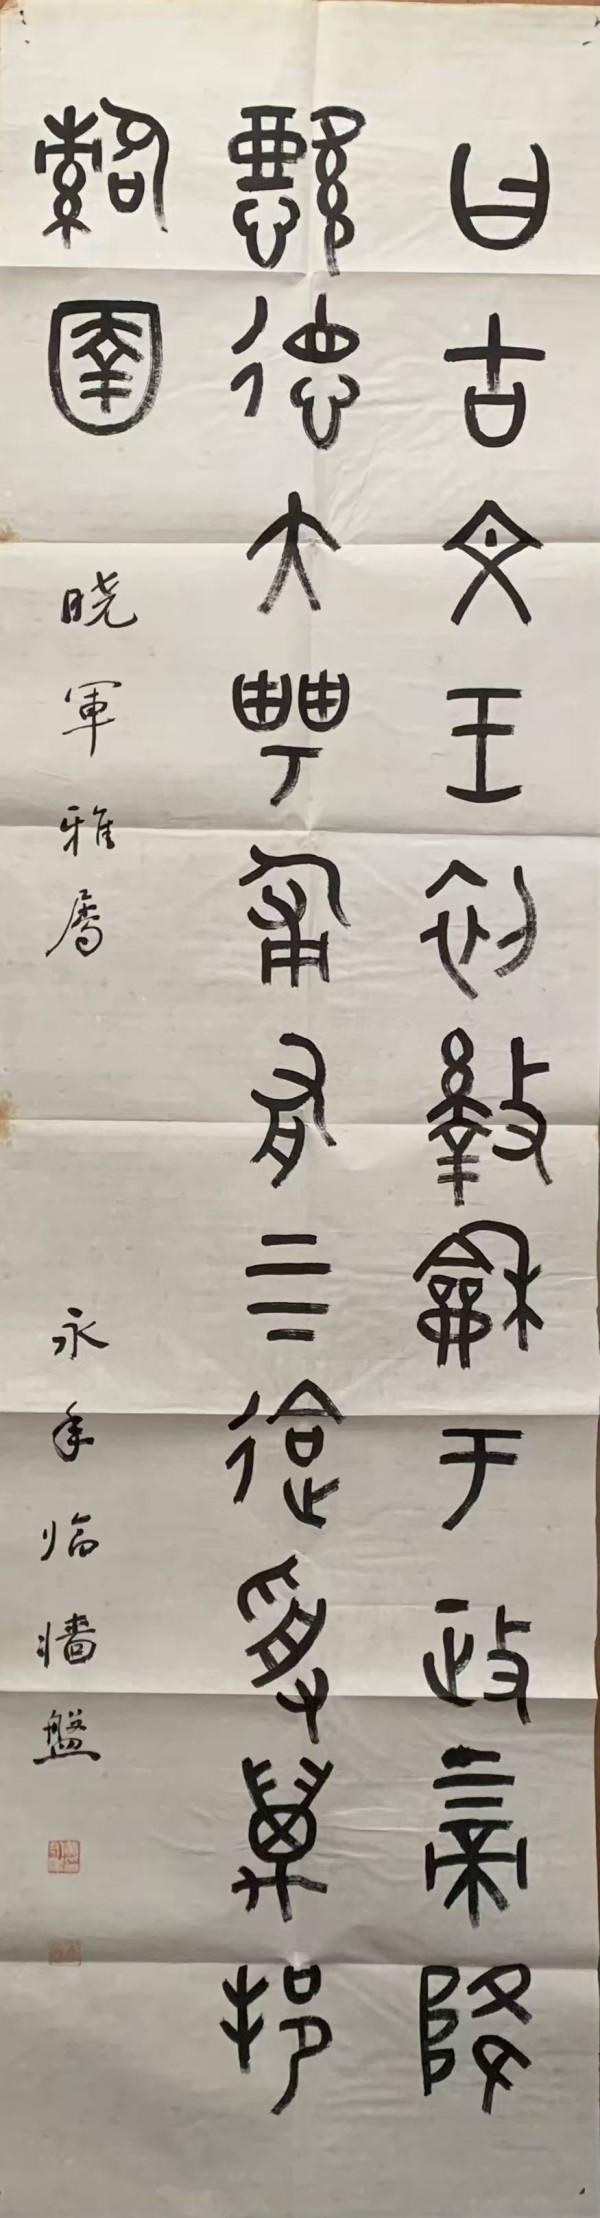 曰古文王初盭龢于政上帝降
懿德大甹匍有上下迨受萬邦
圉
晓軍雅屬
永年临牆盤